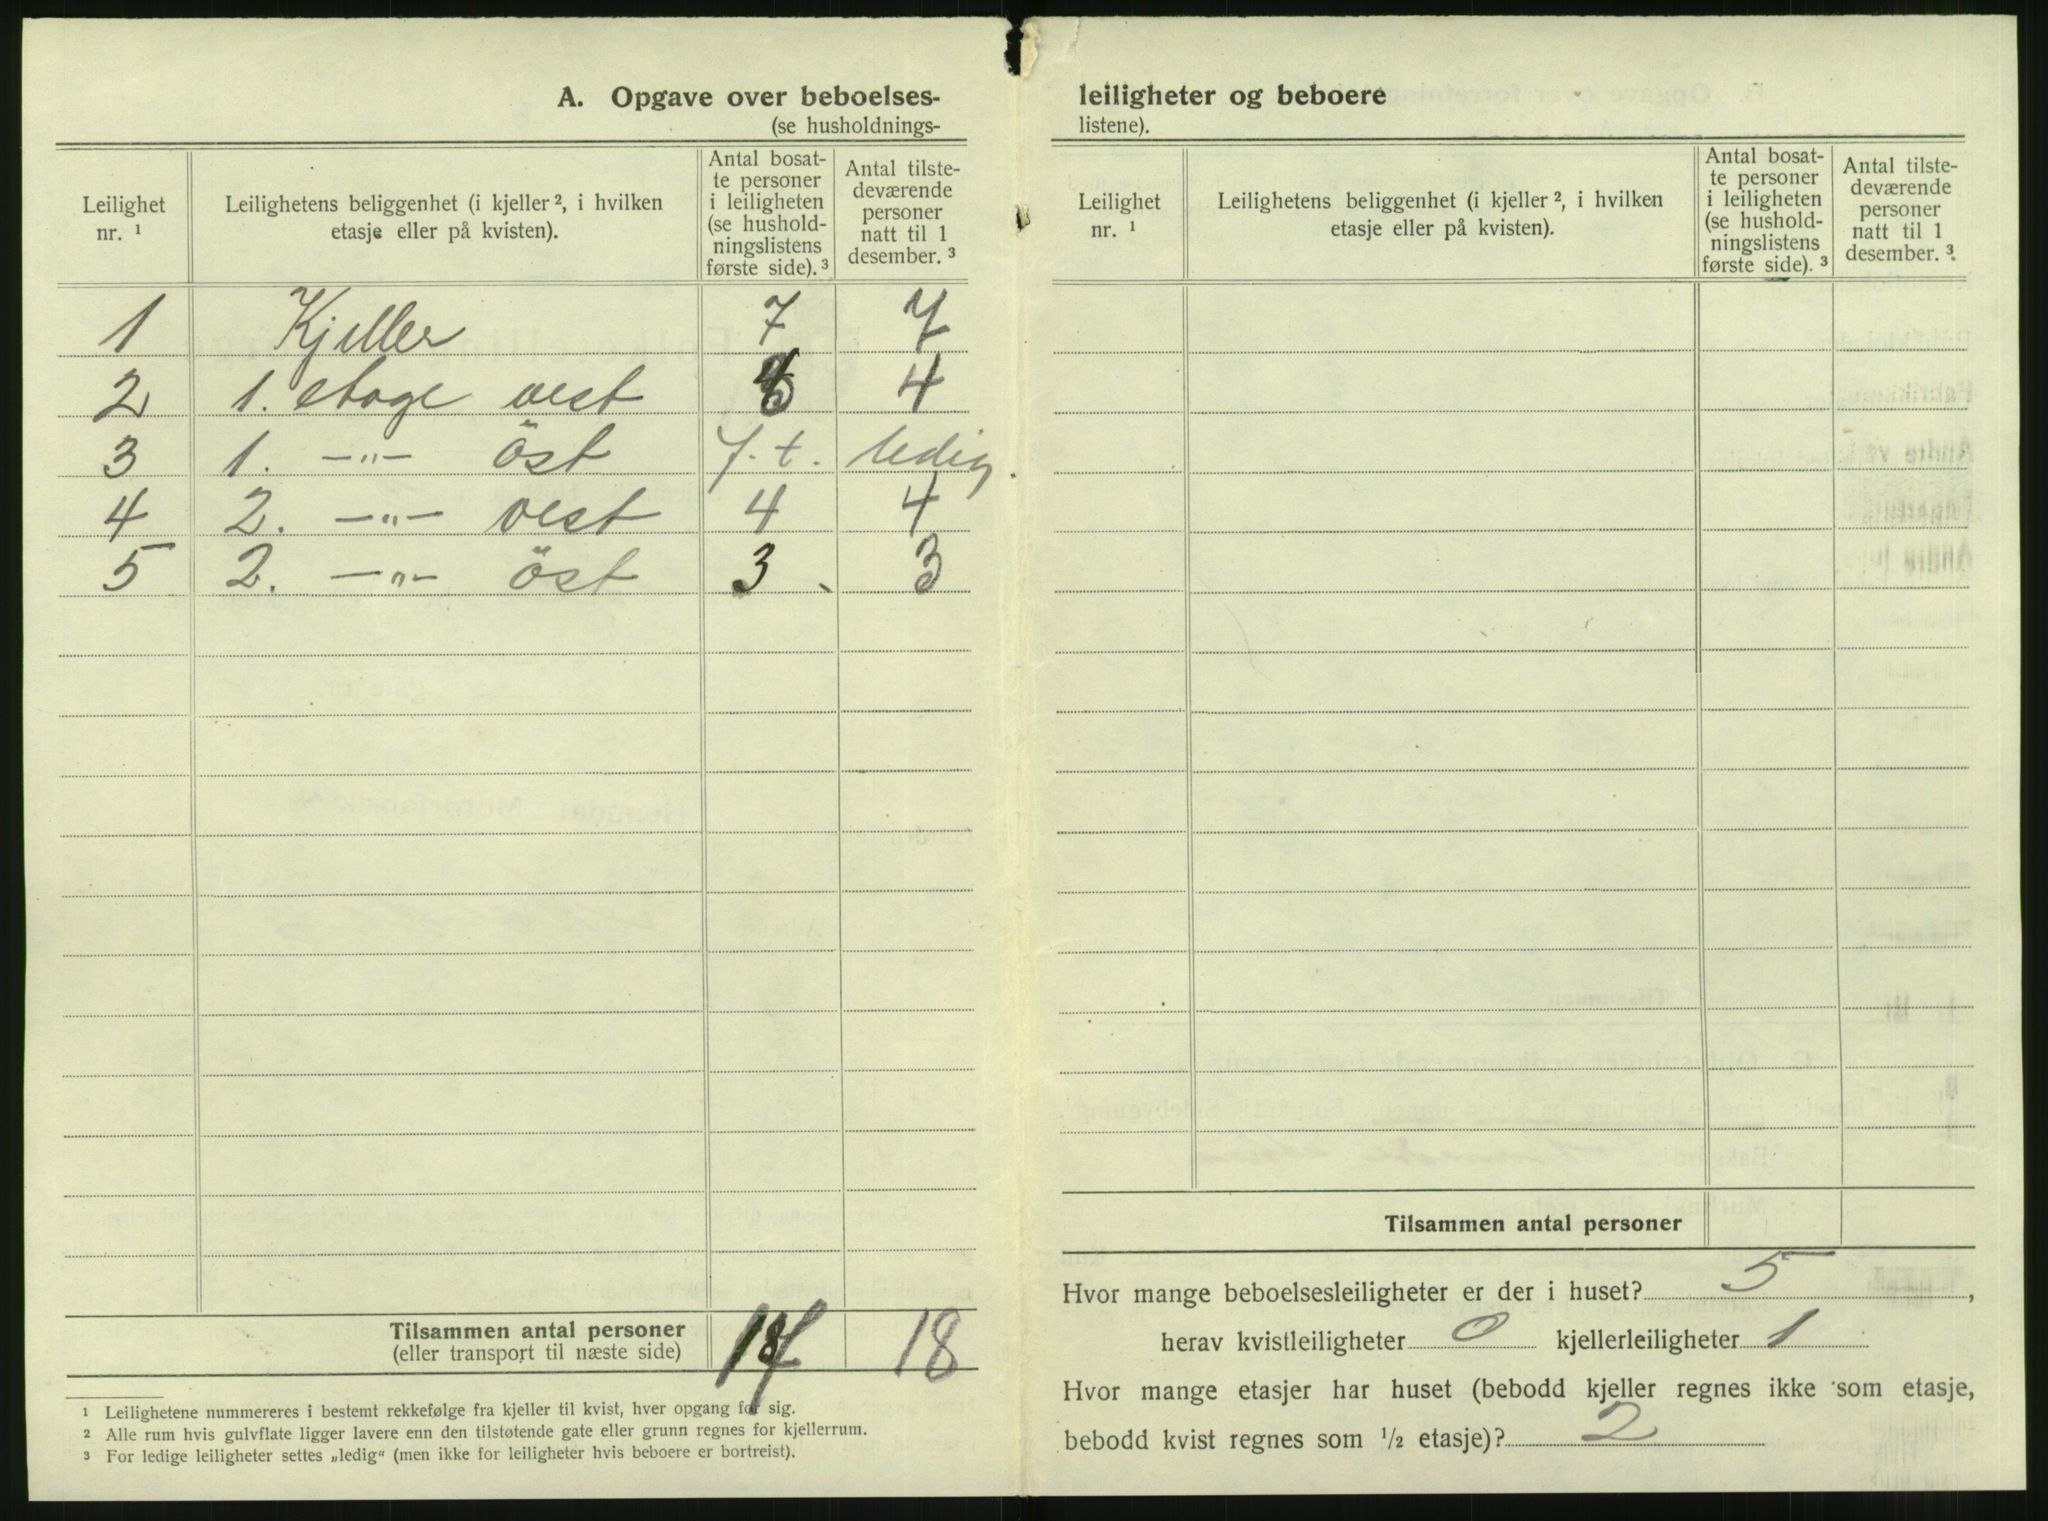 A. Opgave over beboelses-
(se husholdnings-
Leilighet nr. ¹
Leilighetens beliggenhet (i kjeller ², i hvilken etasje eller på kvisten).
Antal bosat-
te personer
i leiligheten
(se hushold-
ningslistens
første side). ³
Antal tilste-
deværende
personer
natt til 1
desember. ³
1 Kjeller 7 7
2 1. etage vest 4
3 1. -"- öst f. t. ledig.
4 2. -"- vest 4 4
5 2. -"- öst 3 3
Tilsammen antal personer 18
(eller transport til næste side)
¹ Leilighetene nummereres i bestemt rekkefølge fra kjeller til kvist, hver opgang for sig.
² Alle rum hvis gulvflate ligger lavere enn den tilstøtende gate eller grunn regnes for kjellerrum.
³ For ledige leiligheter settes „ledig“ (men ikke for leiligheter hvis beboere er bortreist).
leiligheter og beboere
listene).
Leilighet nr. ¹
Leilighetens beliggenhet (i kjeller ², i hvilken etasje eller på kvisten).
Antal bosat-
te personer
i leiligheten
(se hushold-
ningslistens
første side). ³
Antal tilste-
deværende
personer
natt til 1
desember. ³
Tilsammen antal personer
Hvor mange beboelsesleiligheter er der i huset? 5,
herav kvistleiligheter 0 kjellerleiligheter 1
Hvor mange etasjer har huset (bebodd kjeller regnes ikke som etasje,
bebodd kvist regnes som ½ etasje)? 2